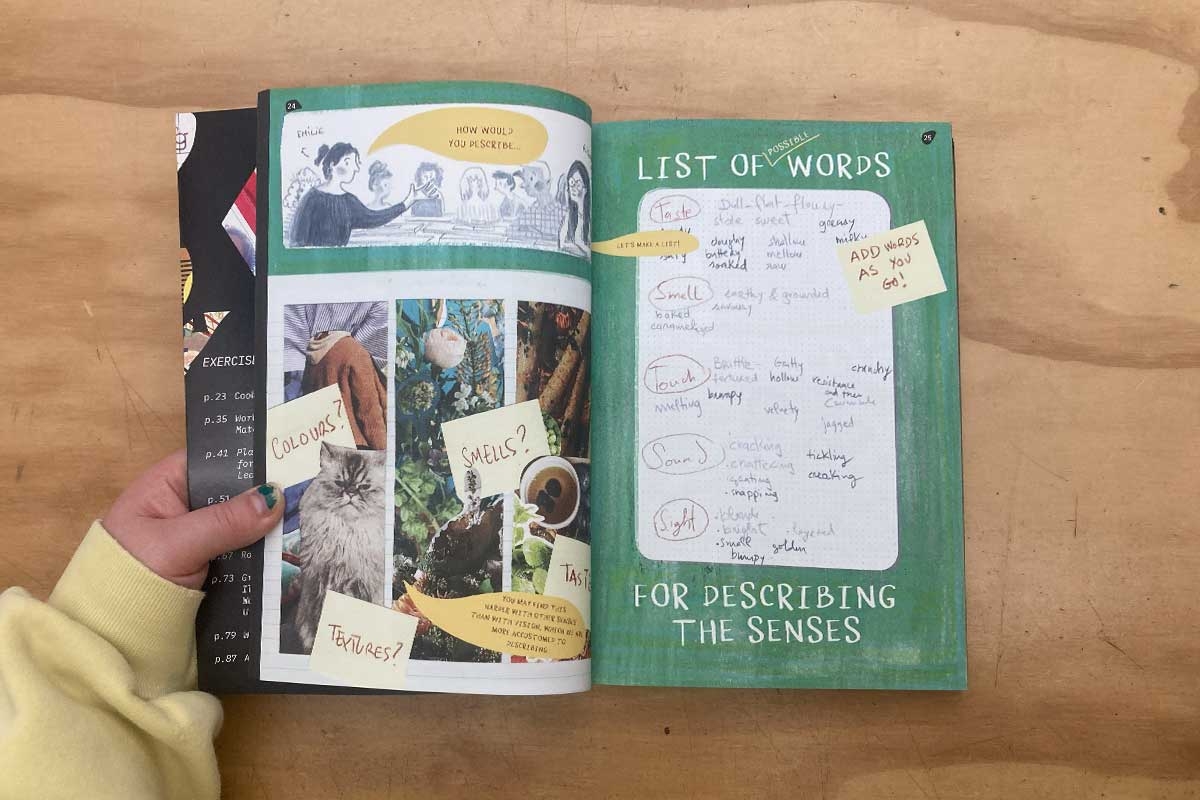 EXERCISE
p.23 Coo
p.35 Wor
Mat
p.41 Pla
for
Le
p.51
p.67 Ro
p.73 G
p.79 W
p.87 A
24
EMILIE
HOW WOULD
YOU DESCRIBE...
COLOURS?
SMELLS?
TEXTURES?
TAST
YOU MAY FIND THIS
HARDER WITH OTHER SENSES
THAN WITH VISION, WHICH WE ARE
MORE ACCUSTOMED TO
DESCRIBING
25
LIST OF POSSIBLE WORDS
Taste Dull - flat - flowery -
stale sweet greasy
LET'S MAKE A LIST!
doughy shallow milky
salty buttery mellow
soaked raw
ADD WORDS
AS YOU
GO!
Smell earthy & grounded
baked savoury
caramelized
Touch Brittle - Gritty crunchy
textured hollow resistance
bumpy and then
melting velvety
jagged
Sound cracking tickling
chattering creaking
snapping
Sight blonde
bright layered
small golden
bumpy
FOR DESCRIBING
THE SENSES